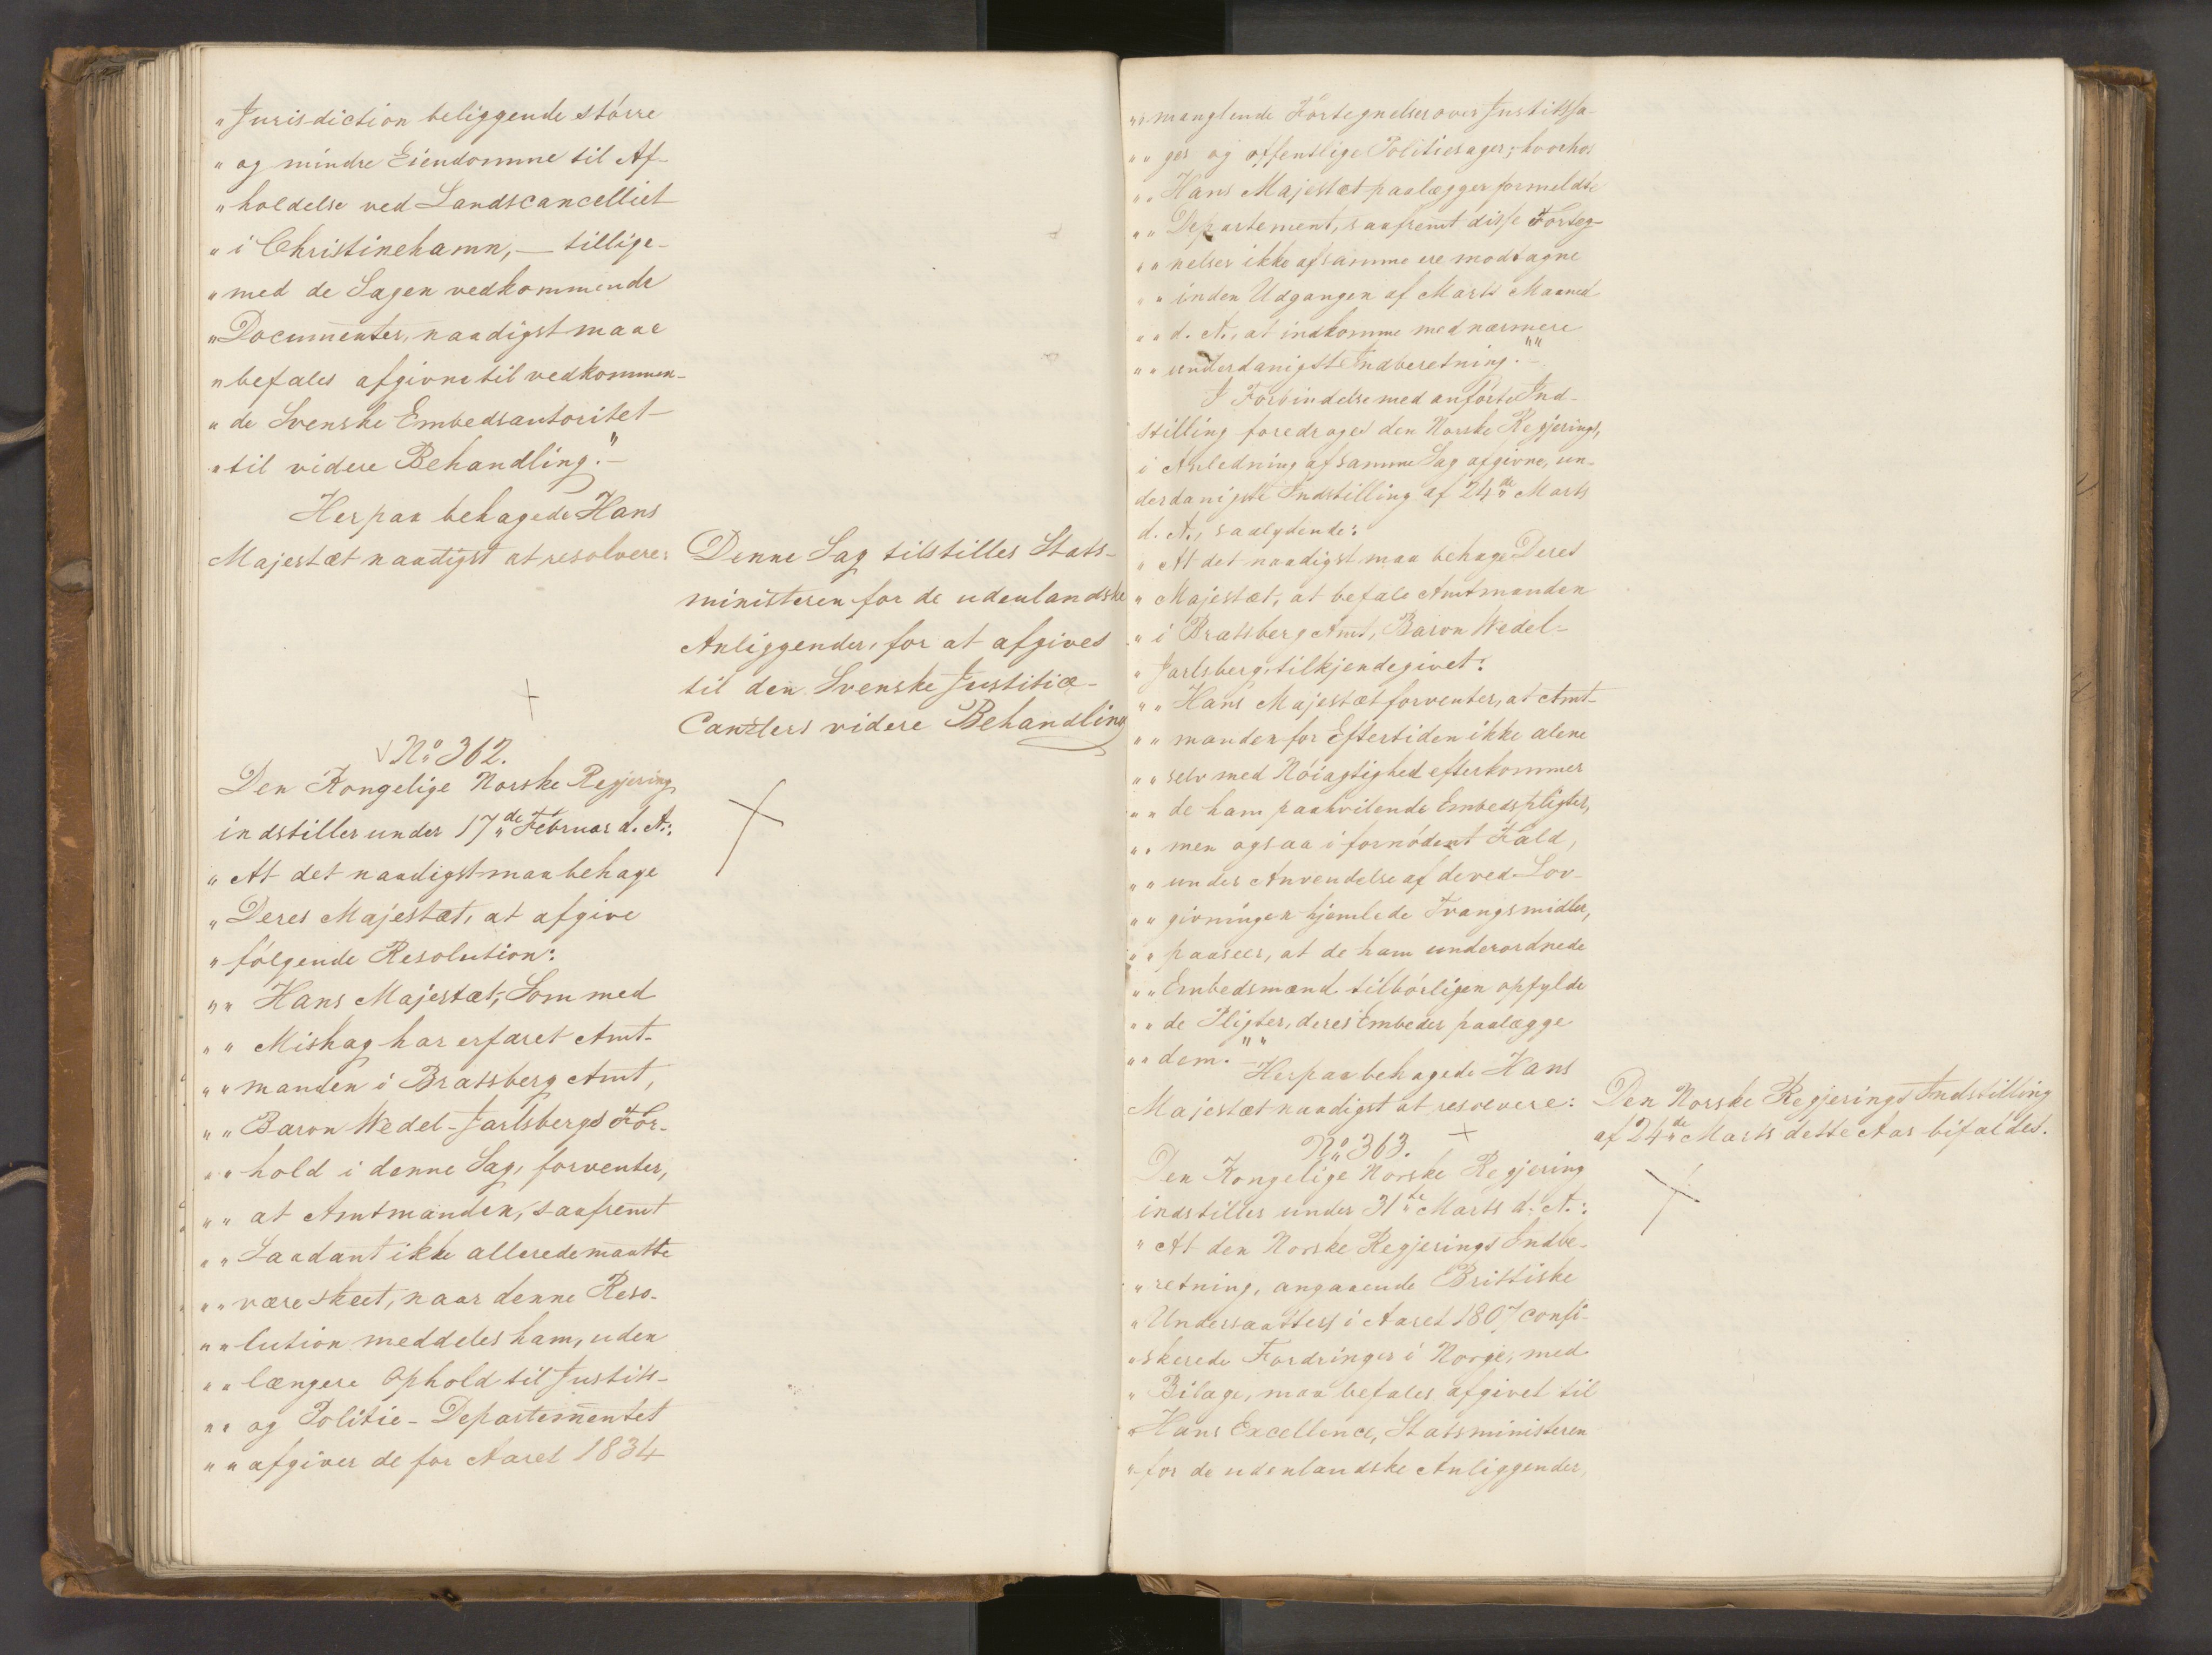 „Jurisdiction beliggende större
„og mindre Eiendomme til Af-
„holdelse ved Landscancelliet
„i Christinehamn, — tillige-
„med de Sagen vedkommende
„Documenter, naadigst maae
„befales afgivne til vedkommen-
„de Svenske Embedsautoritet
„til videre Behandling."—
Herpaa behagede Hans
Majestæt naadigst at resolvere:
Denne Sag tilstilles Stats-
ministeren for de udenlandske
Anliggender, for at afgives
til den Svenske Justitiæ-
Canzlers videre Behandling
No 362.
Den Kongelige Norske Regjering
indstiller under 17de Februar d. A.:
„At det naadigst maa behage
„Deres Majestæt, at afgive
„fölgende Resolution:
„„Hans Majestæt, Som med
„„Mishag har erfaret Amt-
„„manden i Bratsberg Amt,
„„Baron Wedel-Jarlsbergs For-
„„hold i denne Sag, forventer,
„„at Amtmanden, saafremt
„„Saadant ikke allerede maatte
„„være skeet, naar denne Reso-
„„lution meddeles ham, uden
„„længere Ophold til Justits-
„„og Politie-Departementet
„„afgiver de for Aaret 1834
„„manglende Fortegnelser over Justitssa-
„„ger og offentlige Politiesager; hvorhos
„„Hans Majestæt paalægger formeldte
„„Departement, saafremt disse Forteg-
„„nelser ikke af samme ere modtagne
„„inden Udgangen af Marts Maaned
„„d. A., at indkomme med nærmere
„„underdanigst Indberetning.""—
I Forbindelse med anförte Ind-
stilling foredroges den Norske Regjerings,
i Anledning af samme Sag afgivne, un-
derdanigste Indstilling af 24de Marts
d. A., saalydende:
„At det naadigst maa behage Deres
„Majestæt, at befale Amtmanden
„i Bratsberg Amt, Baron Wedel-
„Jarlsberg, tilkjendegivet:
„„Hans Majestæt forventer, at Amt-
„„manden for Eftertiden ikke alene
„„selv med Nöiagtighed efterkommer
„„de ham paahvilende Embedspligter,
„„men ogsaa i fornödent Fald,
„„under Anvendelse af de ved Lov-
„„givningen hjemlede Tvangsmidler,
„„paaseer, at de ham underordnede
„„Embedsmænd tilbörligen opfylde
„„de Pligter, deres Embeder paalægge
„„dem.""—
Herpaa behagede Hans
Majestæt naadigst at resolvere:
Den Norske Regjerings Indstilling
af 24de Marts dette Aar bifaldes.
No 363.
Den Kongelige Norske Regjering
indstiller under 31te Marts d. A.:
„At den Norske Regjerings Indbe-
„retning, angaaende Brittiske
„Undersaatters i Aaret 1807 confi-
„skerede Fordringer i Norge, med
„Bilage, maa befales afgivet til
„Hans Excellence, Statsministeren
„for de udenlandske Anliggender,